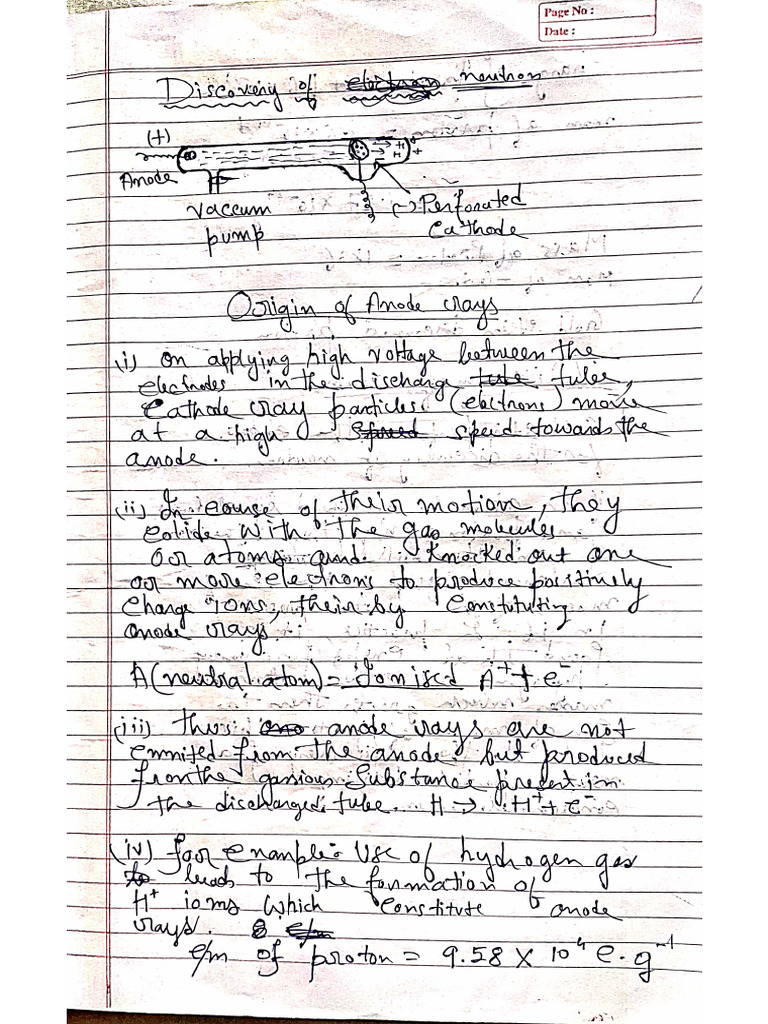 Page No :
Date :
Discovery of electron neutron
(+)
Anode
vaccum
pump
(-) Perforated
Cathode
H
H
+
+
Origin of Anode rays
(i) on applying high voltage between the
electrodes in the discharge tube tube,
Cathode ray particles (electrons) move
at a high speed speed towards the
anode.
(ii) In course of their motion, they
colide with the gas molecules
or atoms and knocked out one
or more electrons to produce positively
charge ions, their by constituting
anode rays.
A (neutral atom) = Ionised A⁺ + e⁻
(iii) thus ano anode rays are not
emmited from the anode but produced
from the gassious substance present in
the discharged tube. H → H⁺ + e⁻
(iv) for example:- Use of hydrogen gas
to leads to the formation of
H⁺ ions which constitute anode
rays. e/m
e/m of proton = 9.58 × 10⁴ C.g⁻¹